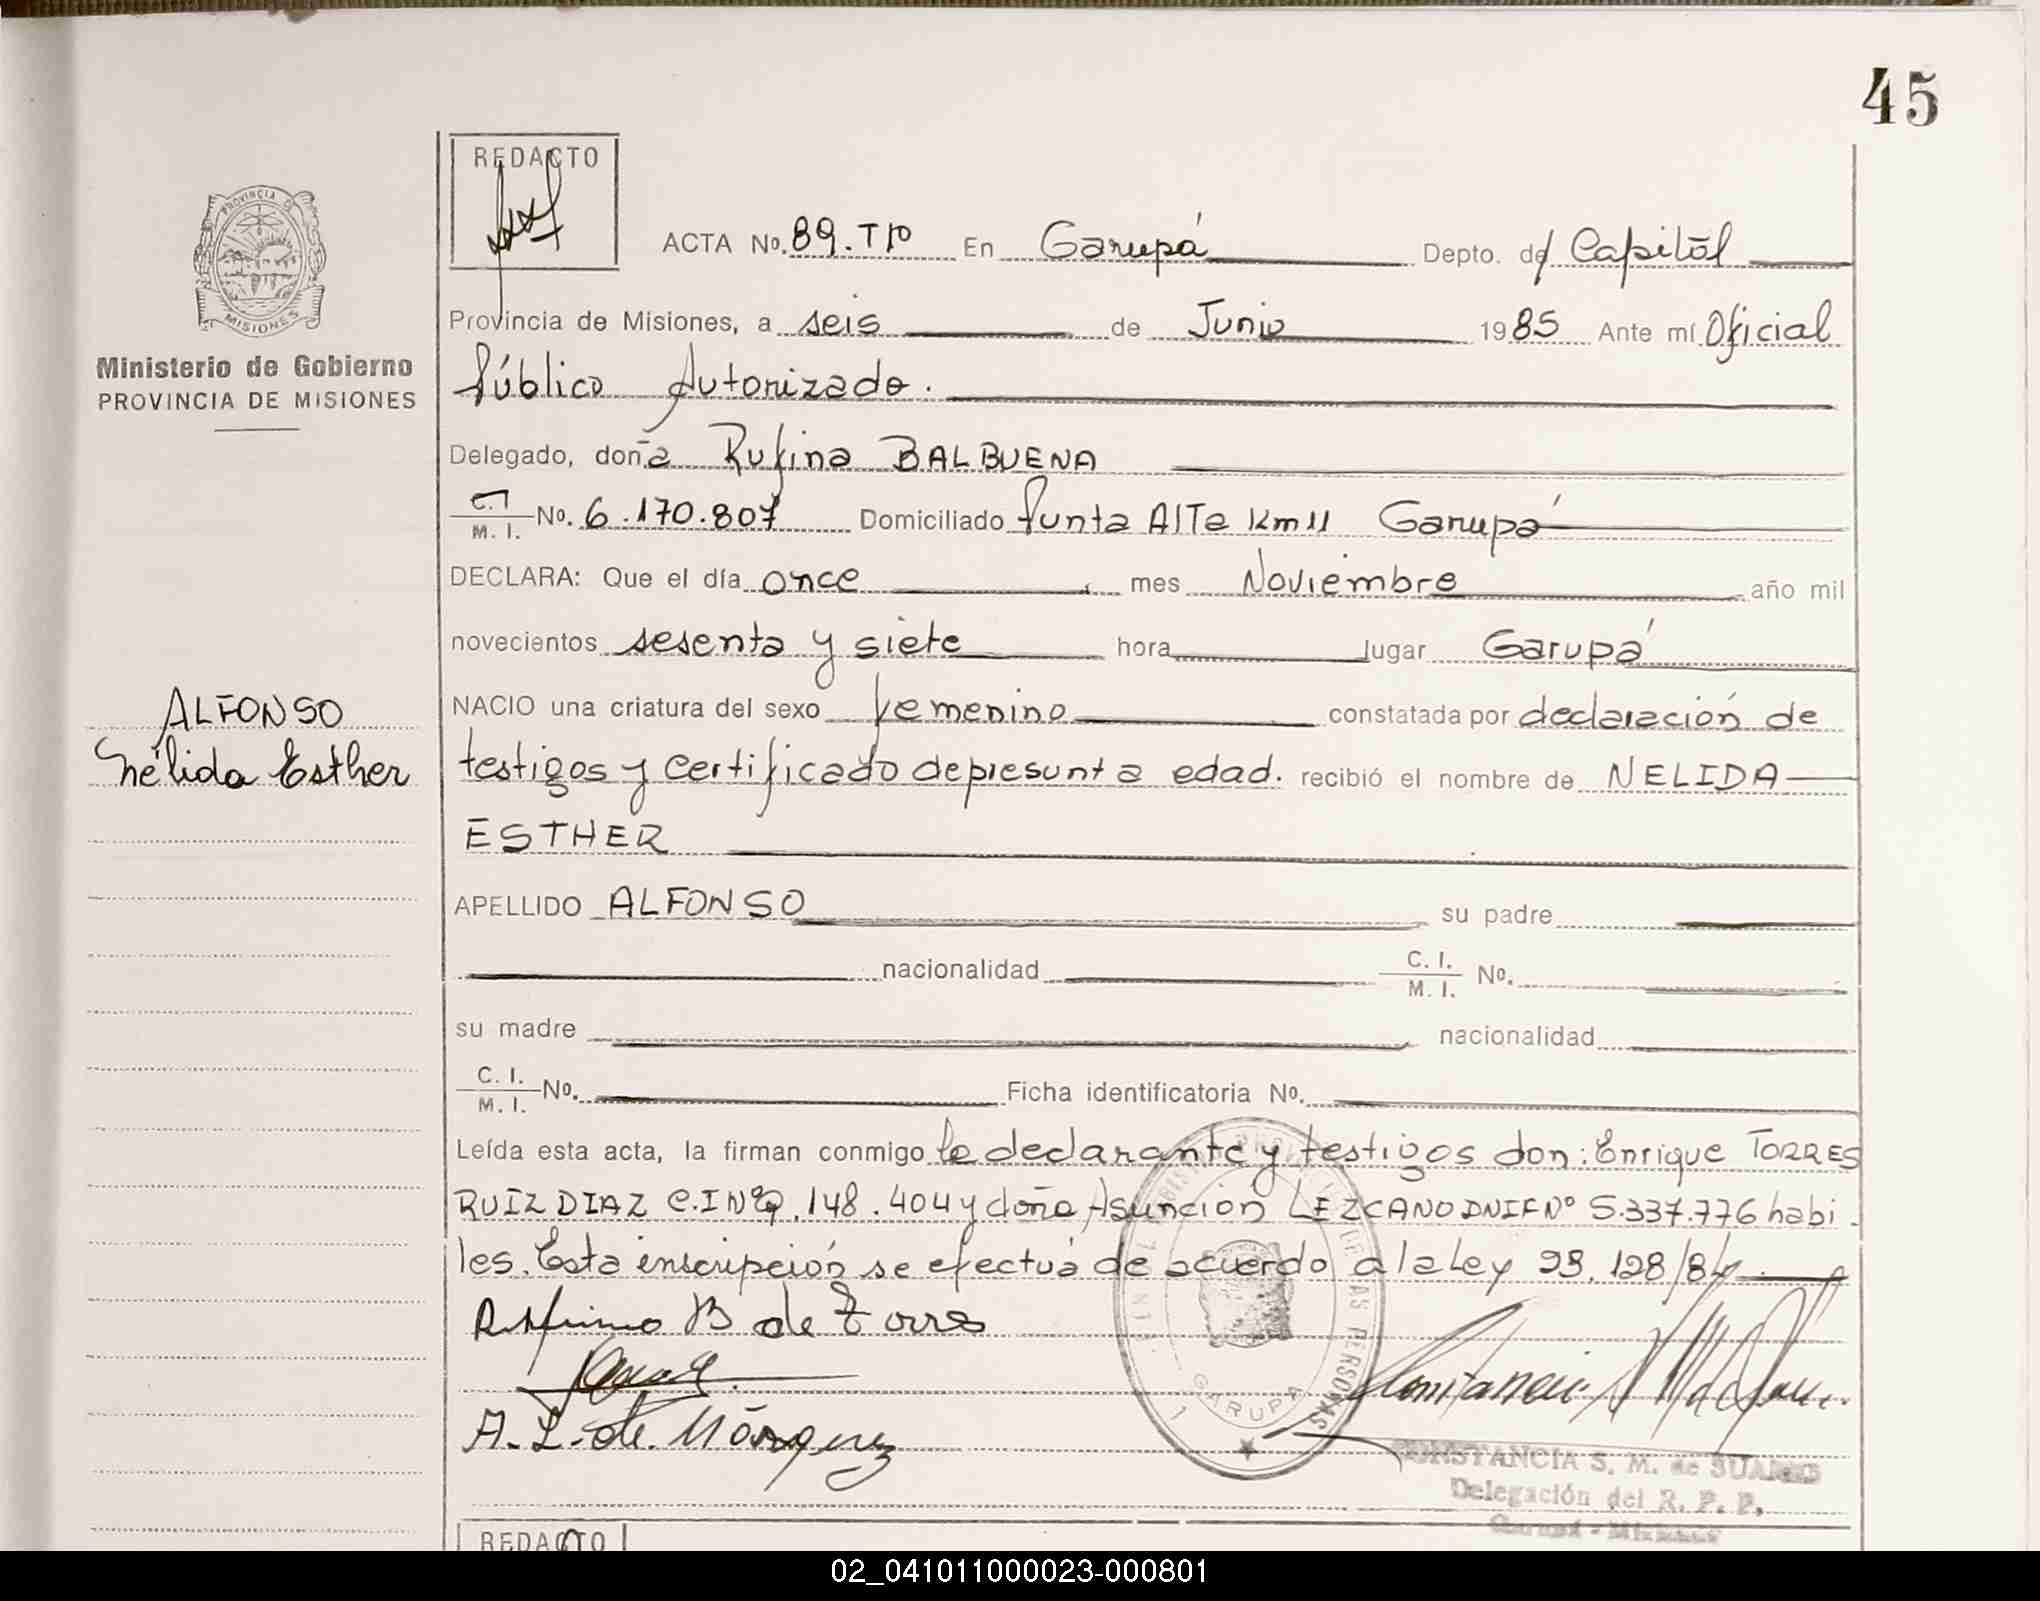 45
REDACTO
PROVINCIA DE
MISIONES
Ministerio de Gobierno
PROVINCIA DE MISIONES
ACTA No. 89. Tº En Garupá Depto. de Capital
Provincia de Misiones, a seis de Junio 1985 Ante mí Oficial
Público Autorizado.
Delegado, doña Rufina BALBUENA
C.I M. I. No. 6.170.807 Domiciliado Punta Alta Km 11 Garupá
DECLARA: Que el día once mes Noviembre año mil
novecientos sesenta y siete hora lugar Garupá
ALFONSO
Nélida Esther
NACIO una criatura del sexo femenino constatada por declaración de
testigos y certificado de presunta edad. recibió el nombre de NELIDA
ESTHER
APELLIDO ALFONSO su padre
nacionalidad C. I. M. I. No.
su madre nacionalidad
C. I. M. I. No. Ficha identificatoria No.
Leída esta acta, la firman conmigo la declarante y testigos don: Enrique TORRES
RUIZ DIAZ C.I Nº 148.404 y doña Asunción LEZCANO DNIF Nº 5.337.776 habi
les. Esta inscripción se efectúa de acuerdo a la Ley 23.128/84
B de Torres
A. L. de Márquez
GARUPA
CONSTANCIA S. M. de SUAREZ
Delegación del R. P. P.
Garupá - Misiones
REDACTO
02_041011000023-000801